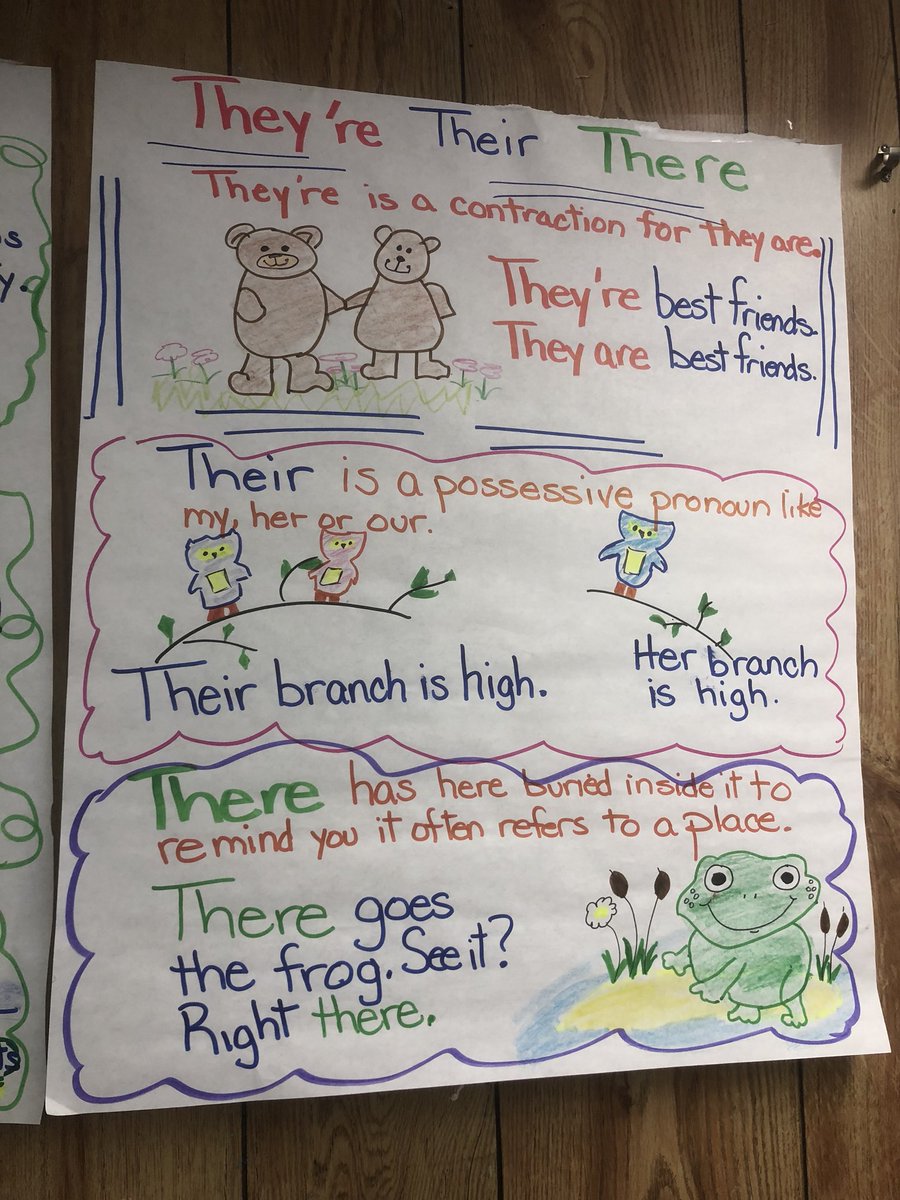 They're Their There
They're is a contraction for They are.
They're best friends.
They are best friends.
Their is a possessive pronoun like
my, her or our.
Their branch is high.
Her branch
is high.
There has here buried inside it to
remind you it often refers to a place.
There goes
the frog. See it?
Right there.